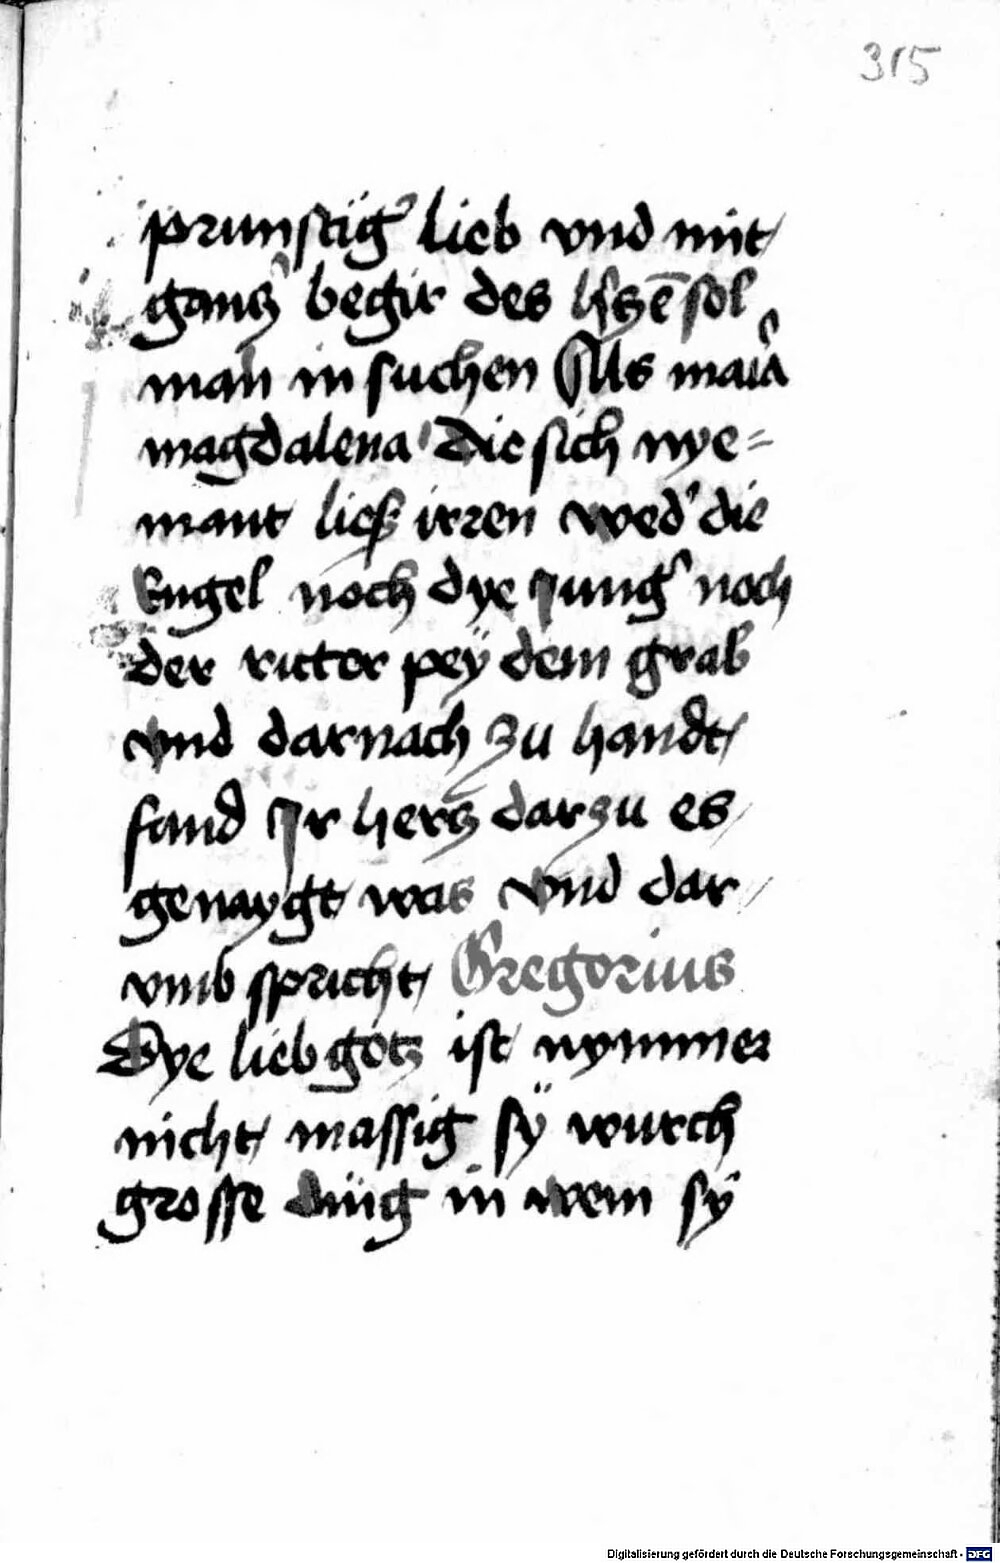 315
prunstiger lieb vnd mit
gantzer begir des hertzē sol
man in suchen Als maria
magdalena die sich nye=
mant ließ irren weder die
Engel noch dye Junger noch
der ritter pey dem grab
vnd darnach zu handt
fand Jr hertz darzu es
genaygt was vnd dar
vmb spricht Gregorius
Dye lieb gotz ist nymmer
nicht massig sÿ wurch
grosse ding in wem sÿ
Digitalisierung gefördert durch die Deutsche Forschungsgemeinschaft - DFG